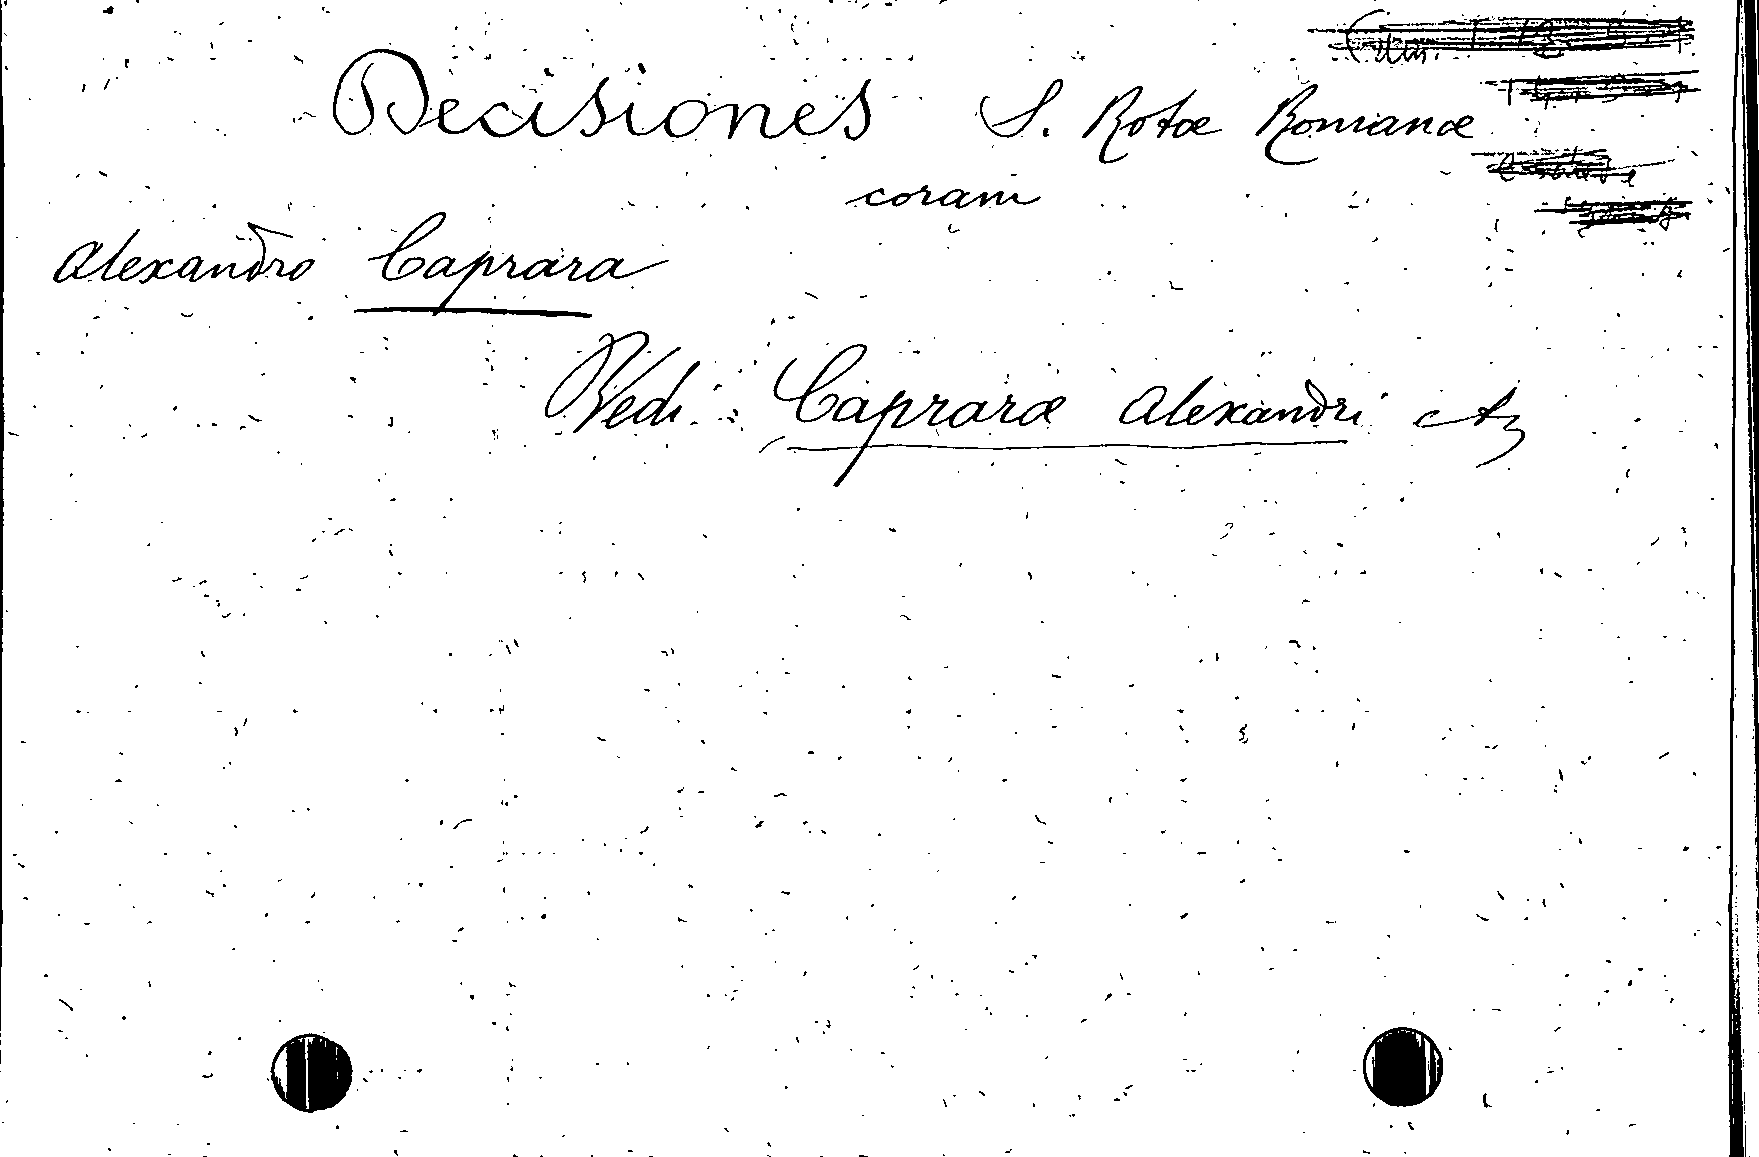 Decisiones S. Rotæ Romanæ
coram
Alexandro Caprara
Vedi: Capraræ Alexandri